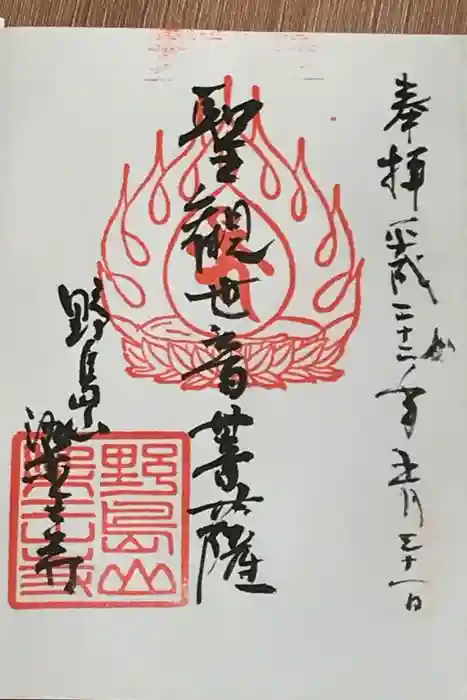 奉拝 平成二十二年五月三十一日
聖観世音菩薩
野島山
染王寺
野島山
染王寺